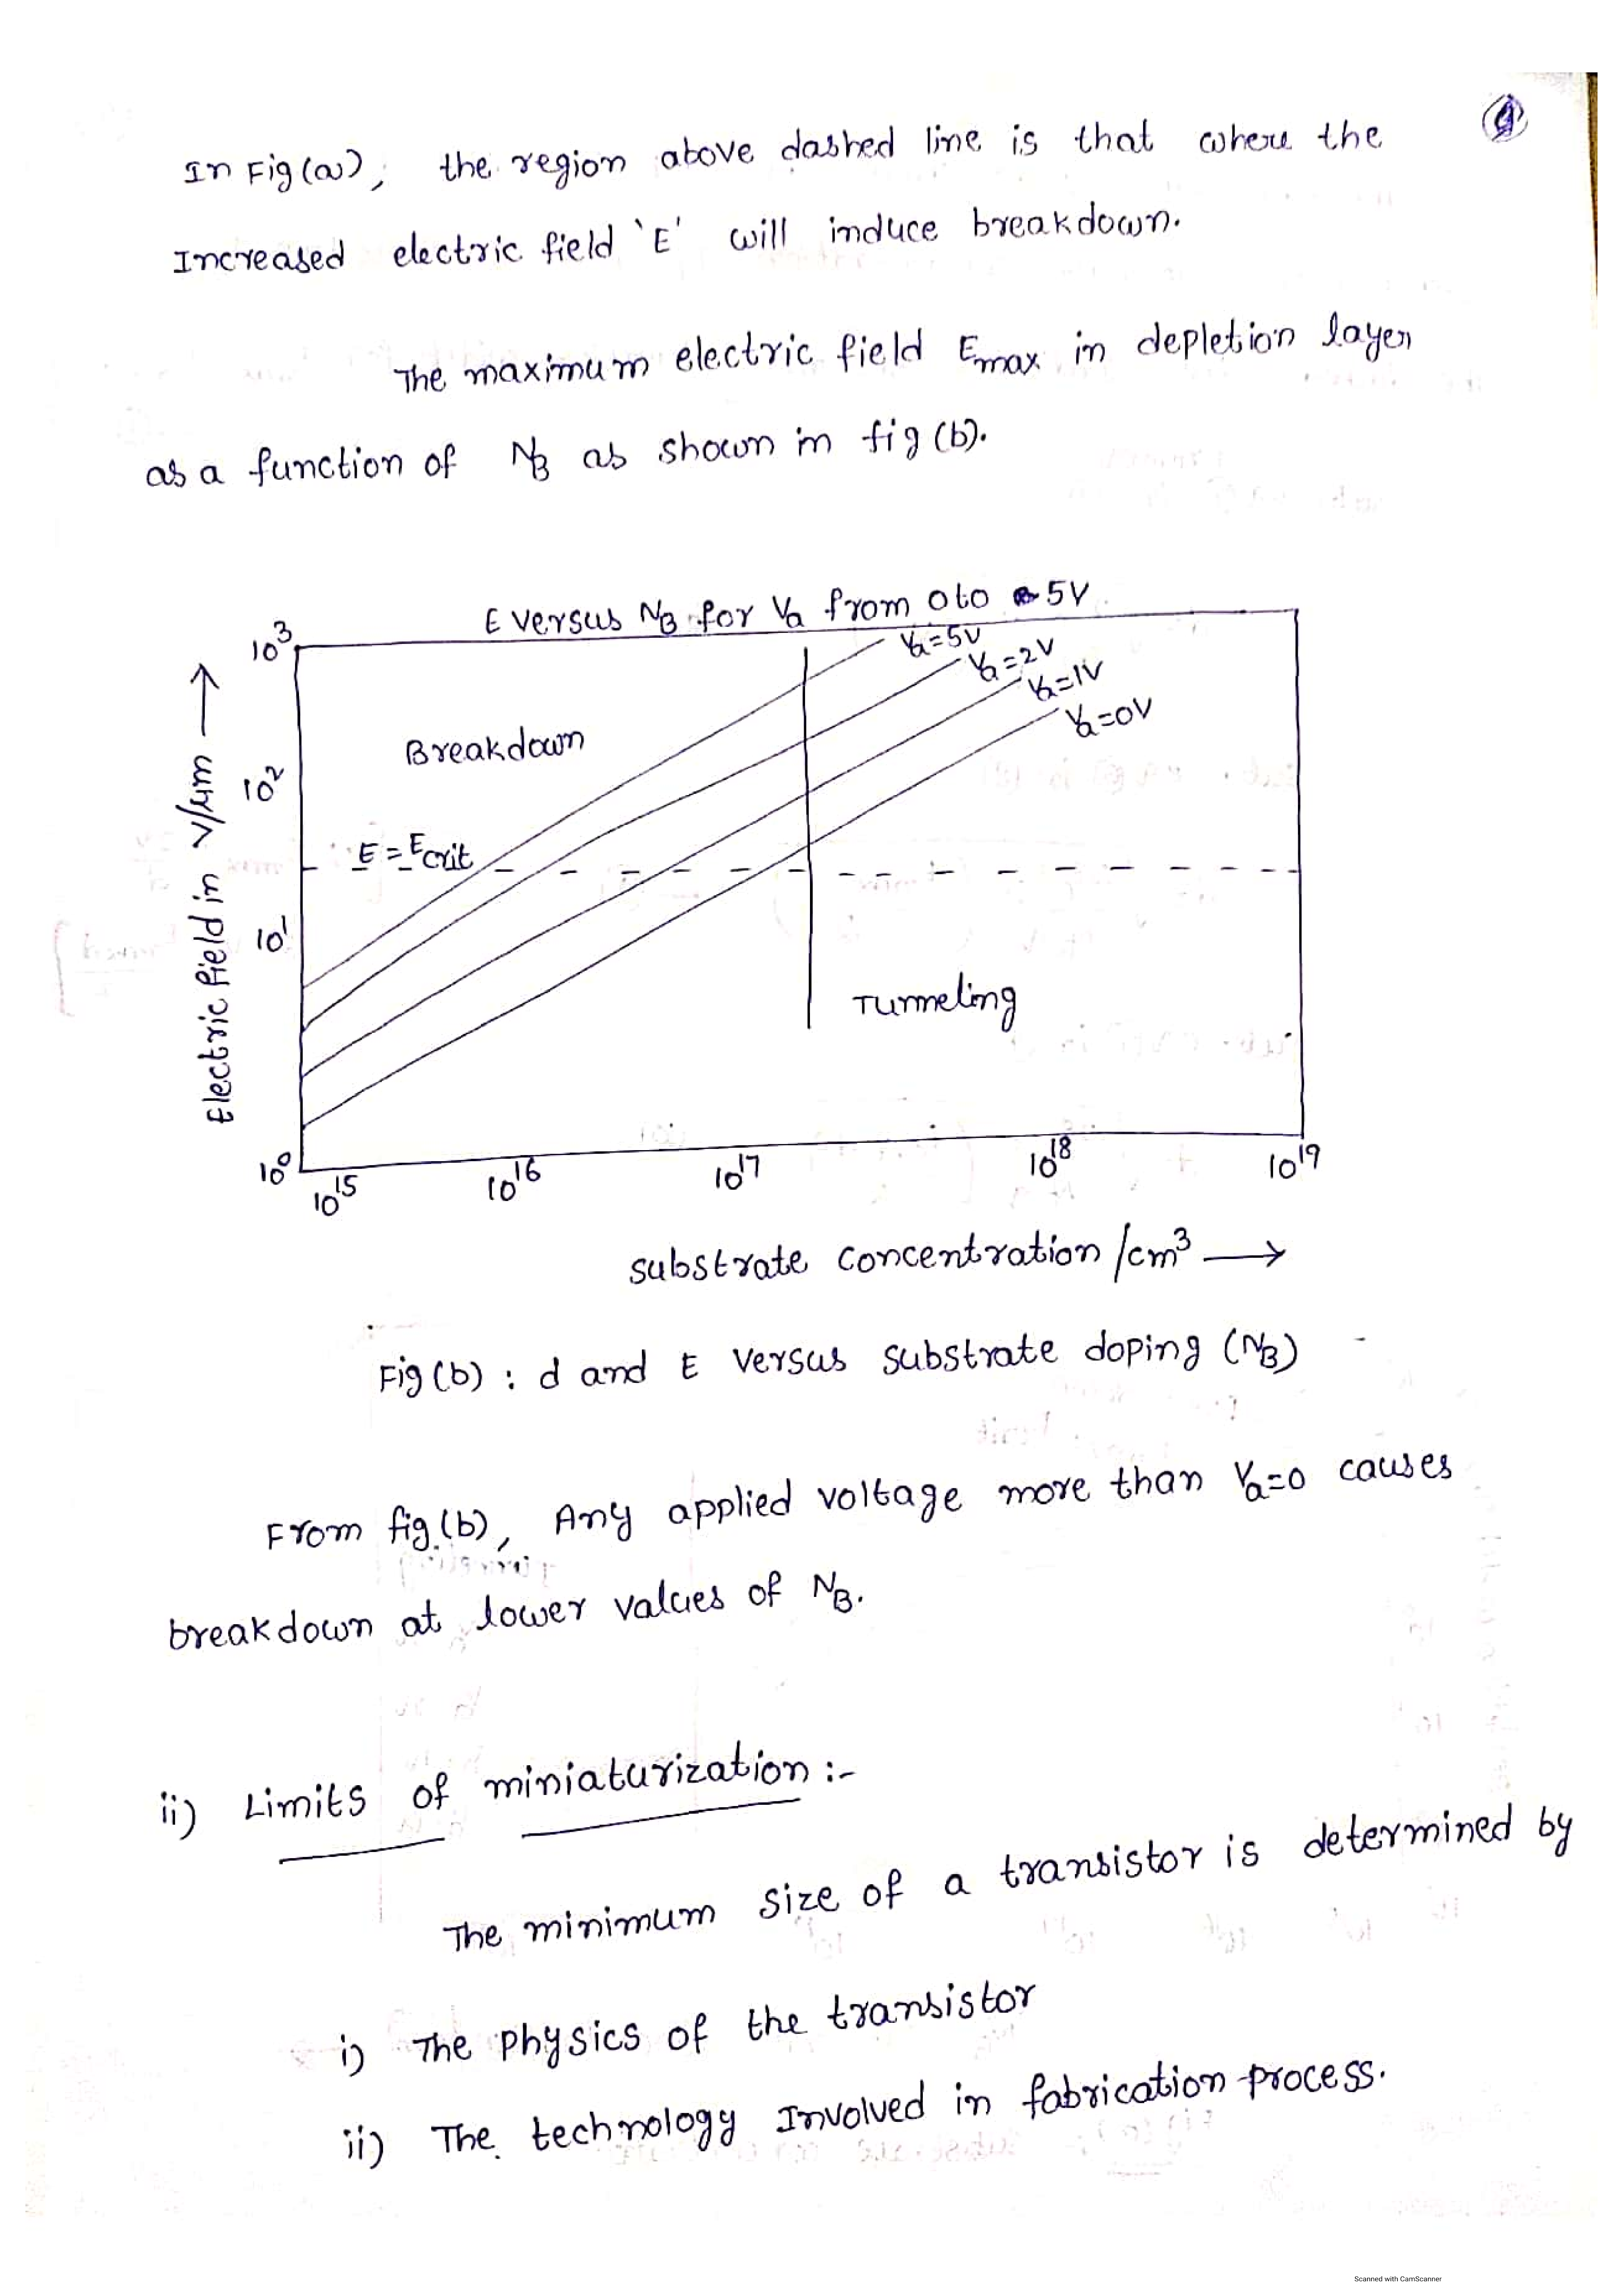 In Fig(a), the region above dashed line is that where the
Increased electric field 'E' will induce breakdown.
The maximum electric field Emax in depletion layer
as a function of NB as shown in fig (b).
E versus NB for Va from 0 to 5V
10³
Va=5V
Va=2V
Va=1V
Va=0V
Breakdown
10²
E = Ecrit
10¹
Electric field in V/μm →
Tunneling
10⁰
10¹⁵ 10¹⁶ 10¹⁷ 10¹⁸ 10¹⁹
substrate concentration /cm³ →
Fig (b) : d and E versus substrate doping (NB)
From fig.(b), Any applied voltage more than Va=0 causes
breakdown at lower values of NB.
ii) Limits of miniaturization :-
The minimum size of a transistor is determined by
i) The physics of the transistor
ii) The technology Involved in fabrication process.
Scanned with CamScanner